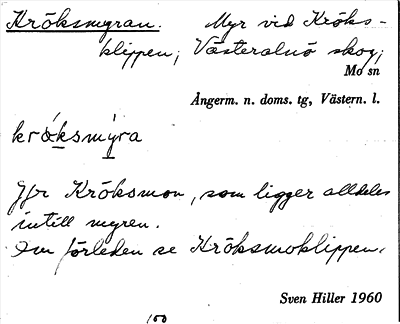 Kröksmyran. Myr vid Kröks-
klippen; Västeralnö skog;
Mo sn
Ångerm. n. doms. tg, Västern. l.
krö́ksmýra
Jfr Kröksmon, som ligger alldeles
intill myren.
Om förleden se Kröksmoklippen.
Sven Hiller 1960
100